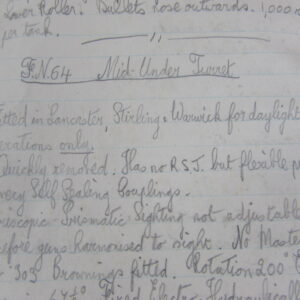 Lower Roller. Bullets nose outwards. 1,000 r
per tank.
F.N.64 Mid-Under Turret
Fitted in Lancaster, Stirling & Warwick for daylight
erations only.
Quickly removed. Has no R.S.J. but flexible p
very Self Sealing Couplings.
iscopic-Prismatic Sighting not adjustable
efore guns harmonised to sight. No Master
.303 Brownings fitted. Rotation 200°
Fired Electro-Hydraulically